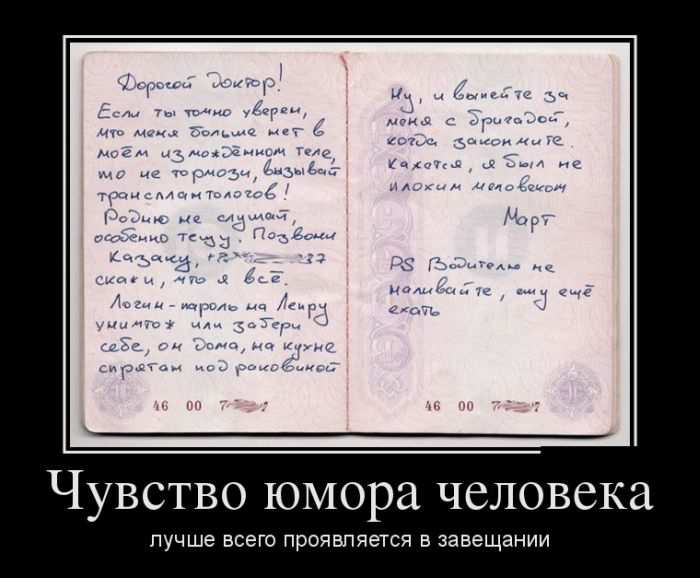 Дорогой Доктор!
Если ты точно уверен,
что меня больше нет в
моём измождённом теле,
то не тормози, вызывай
трансплантологов!
Родню не слушай,
особенно тещу. Позвони
Казаку, +7 37
скажи, что я всё.
Логин-пароль на Лепру
уничтож или забери
себе, он дома, на кухне
спрятан под раковиной
46 00 7
Ну, и выпейте за
меня с бригадой,
когда закончите.
Кажется, я был не
плохим человеком
Март
PS Водителю не
наливайте, ему ещё
ехать
46 00 7
Чувство юмора человека
лучше всего проявляется в завещании